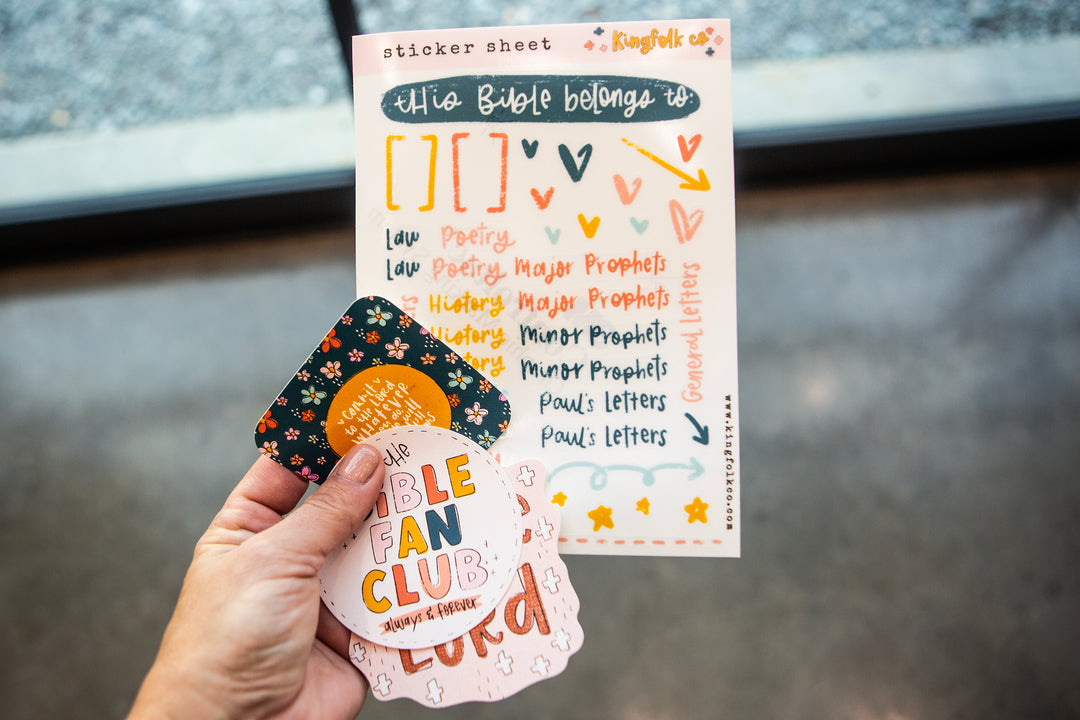 sticker sheet
Kingfolk co
this Bible belongs to:
Law Poetry
Law Poetry Major Prophets
History Major Prophets
History Minor Prophets
Minor Prophets
Paul's Letters
Paul's Letters
General Letters
www.kingfolkco.com
commit
to the Lord
whatever
you do,
the
BIBLE
FAN
CLUB
always & forever
Lord